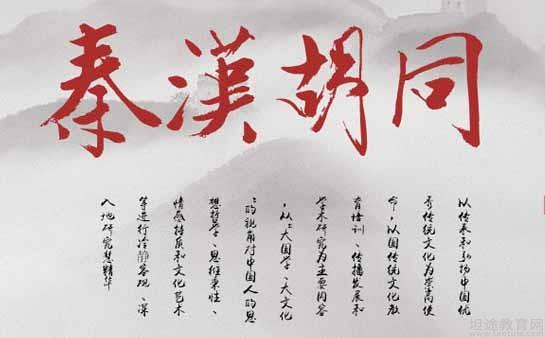 秦漢胡同
以传承和弘扬中国优
秀传统文化为崇高使
命,以国传统文化教
育培训、传播发展和
学术研究为主要内容
,以“大国学、大文化
”的视角对中国人的思
想哲学、思维秉性、
情感特质和文化艺术
等进行冷静客观、深
入地研究慧精华
坦途教育网